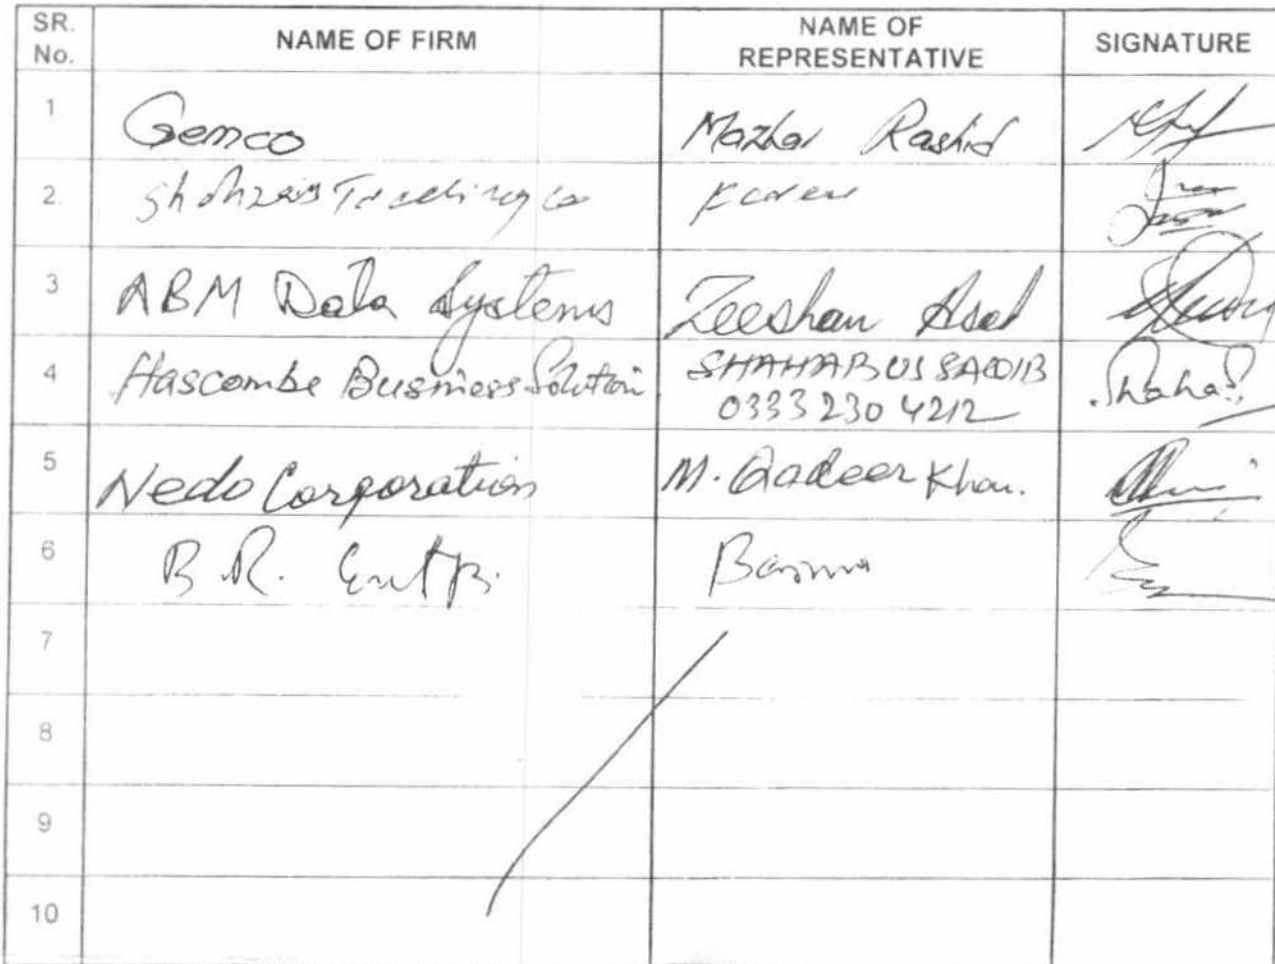 SR. No.
NAME OF FIRM
NAME OF REPRESENTATIVE
SIGNATURE
1 Gemco Mazhar Rashid
2. Trading Co
3 ABM Data Systems Zeeshan Asad
4 Hascombe Business Solution SHAHAB US SAQIB
0333 230 4212
5 Nedo Corporation M. Qadeer Khan.
6 B.R. Entp.
7
8
9
10